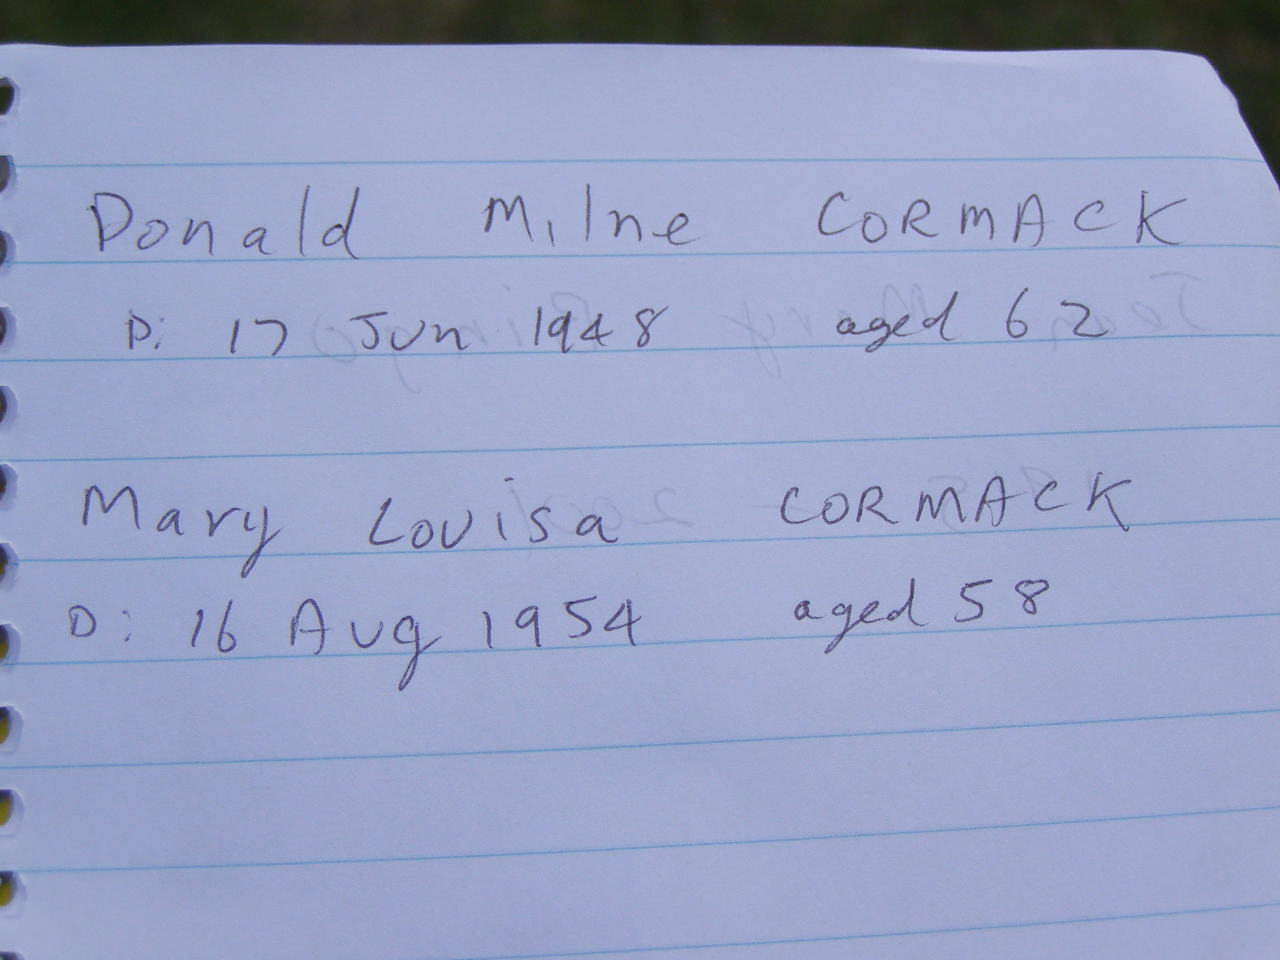 Donald Milne CORMACK
D: 17 Jun 1948 aged 62
Mary Louisa CORMACK
D: 16 Aug 1954 aged 58